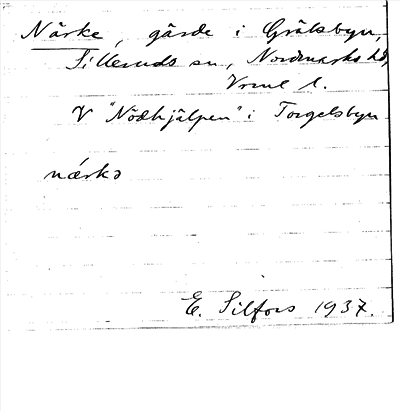 Närke, gärde i Grålsbyn,
Silleruds sn, Nordmarks hd,
Vrml l.
V "Nödhjälpen" i Torgelsbyn
nä́rkə
E. Silfors 1937.